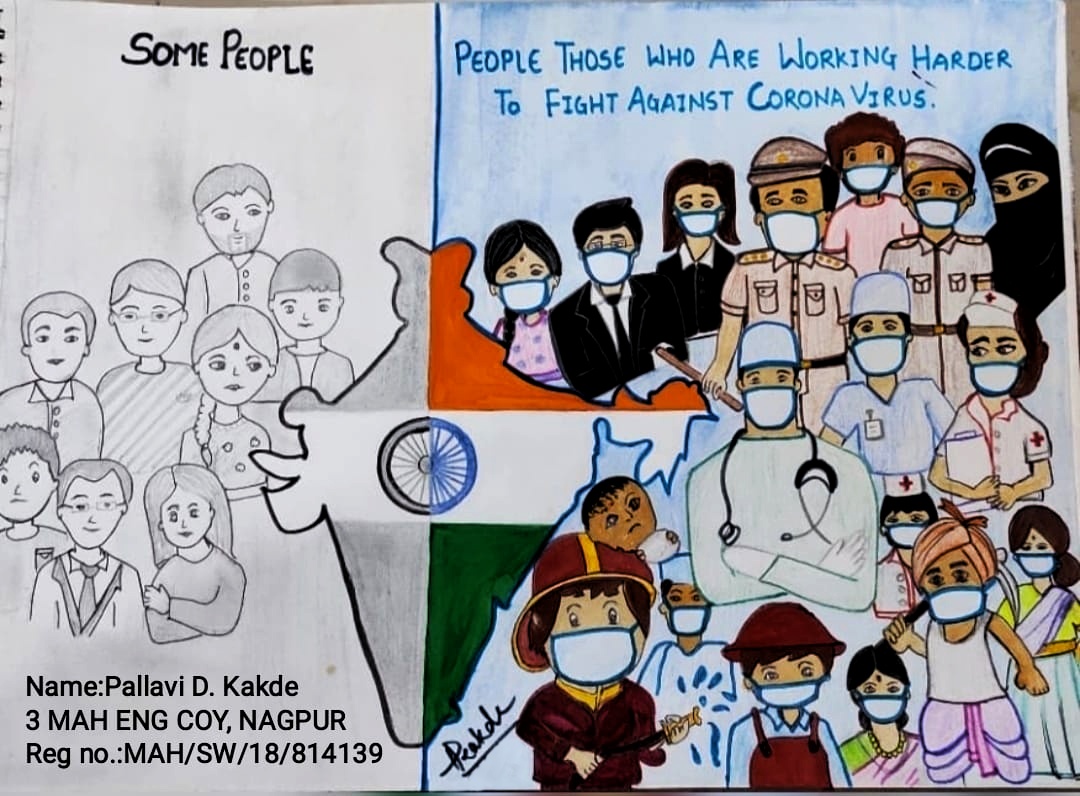 SOME PEOPLE
PEOPLE THOSE WHO ARE WORKING HARDER
TO FIGHT AGAINST CORONA VIRUS.
Pkakde
Name:Pallavi D. Kakde
3 MAH ENG COY, NAGPUR
Reg no.:MAH/SW/18/814139